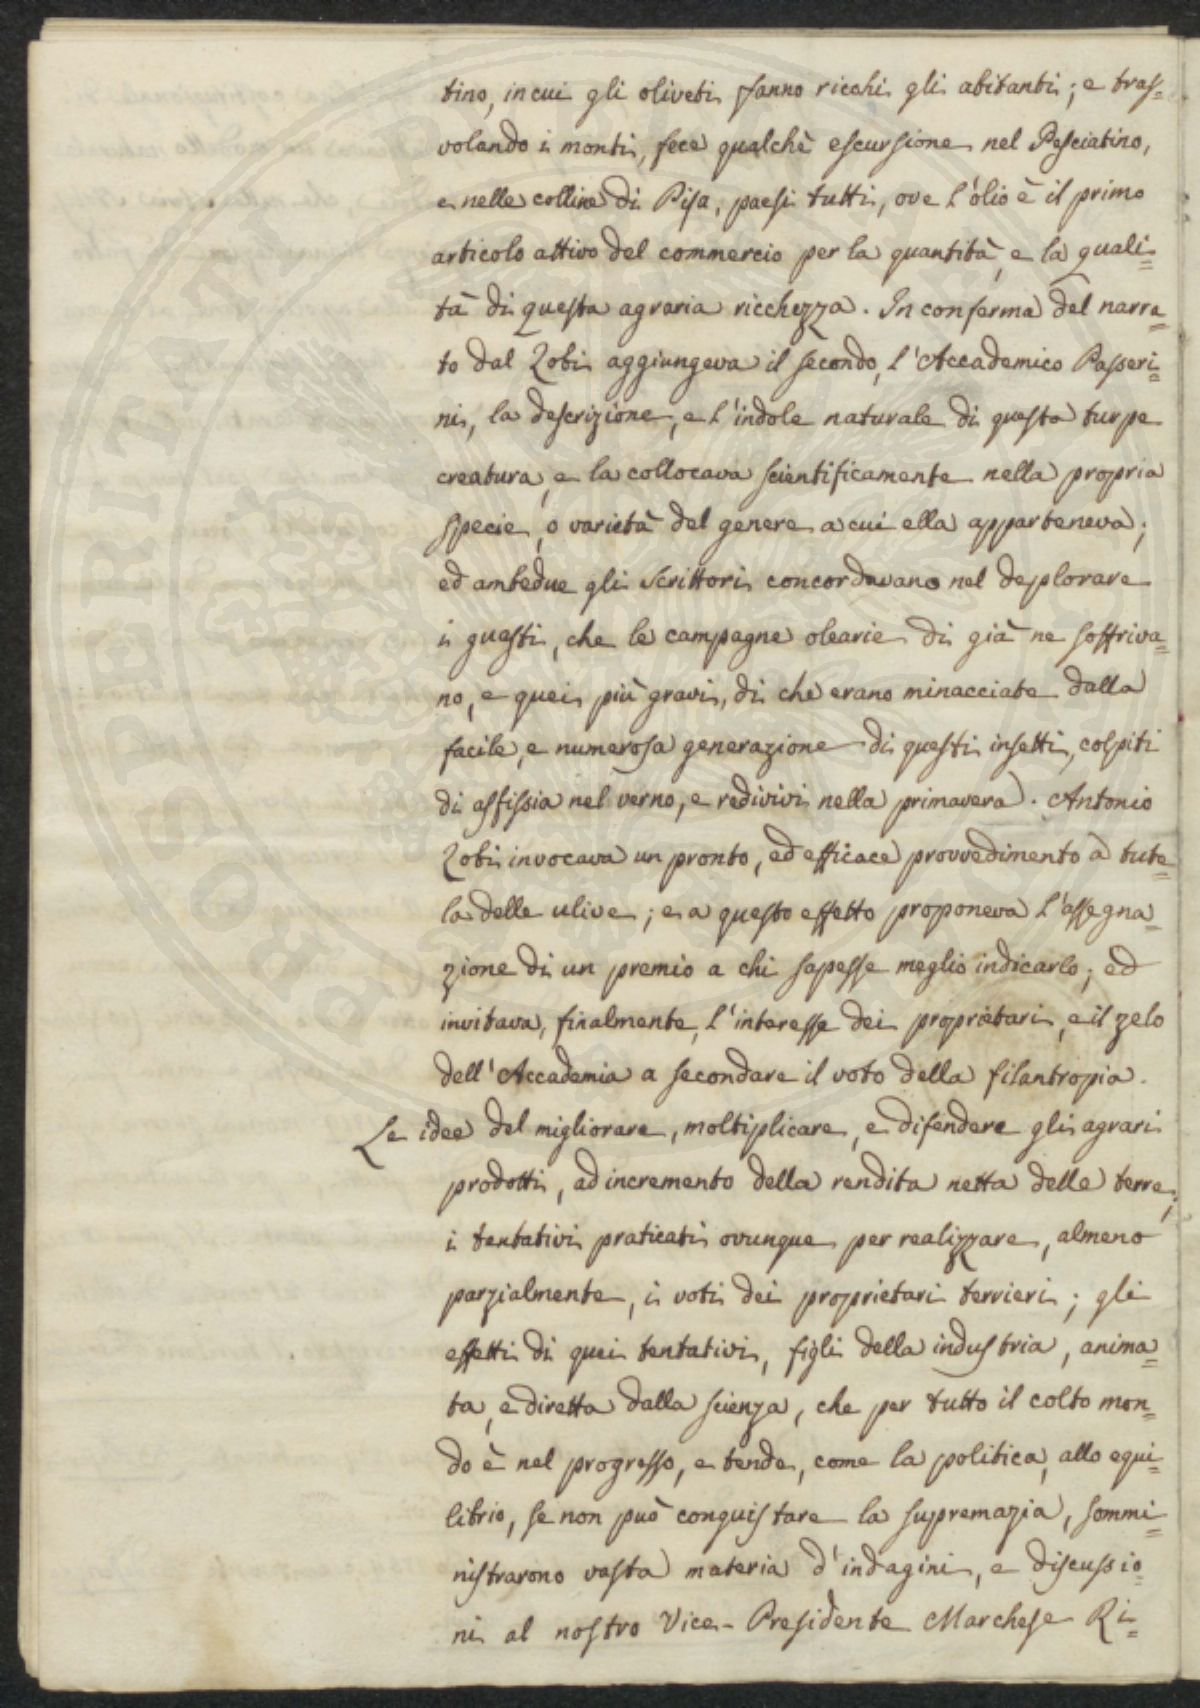 tino, in cui gli oliveti fanno ricchi gli abitanti; e tras=
volando i monti, fece qualchè escursione nel Pesciatino,
e nelle colline di Pisa, paesi tutti, ove l'olio è il primo
articolo attivo del commercio per la quantità, e la quali=
tà di questa agraria ricchezza. In conferma del narra=
to dal Zobi aggiungeva il secondo, l'Accademico Passeri=
ni, la descrizione, e l'indole naturale di questa turpe
creatura, e la collocava scientificamente nella propria
specie, o varietà del genere a cui ella apparteneva;
ed ambedue gli Scrittori concordavano nel deplorare
i guasti, che le campagne olearie di già ne soffriva=
no, e quei più gravi, di che erano minacciate dalla
facile, e numerosa generazione di questi insetti, colpiti
di asfissia nel verno, e redivivi nella primavera. Antonio
Zobi invocava un pronto, ed efficace provvedimento a tute=
la delle ulive; e a questo effetto proponeva l'assegna=
zione di un premio a chi sapesse meglio indicarlo; ed
invitava, finalmente, l'interesse dei proprietari, e il zelo
dell'Accademia a secondare il voto della filantropia.
Le idee del migliorare, moltiplicare, e difendere gli agrari
prodotti, ad incremento della rendita netta delle terre;
i tentativi praticati ovunque per realizzare, almeno
parzialmente, i voti dei proprietari terrieri; gli
effetti di quei tentativi, figli della industria, anima=
ta, e diretta dalla scienza, che per tutto il colto mon=
do è nel progresso, e tende, come la politica, allo equi=
librio, se non può conquistare la supremazia, sommi=
nistrarono vasta materia d'indagini, e discussio=
ni al nostro Vice-Presidente Marchese Ri=
PROSPERITATI PUBLICAE